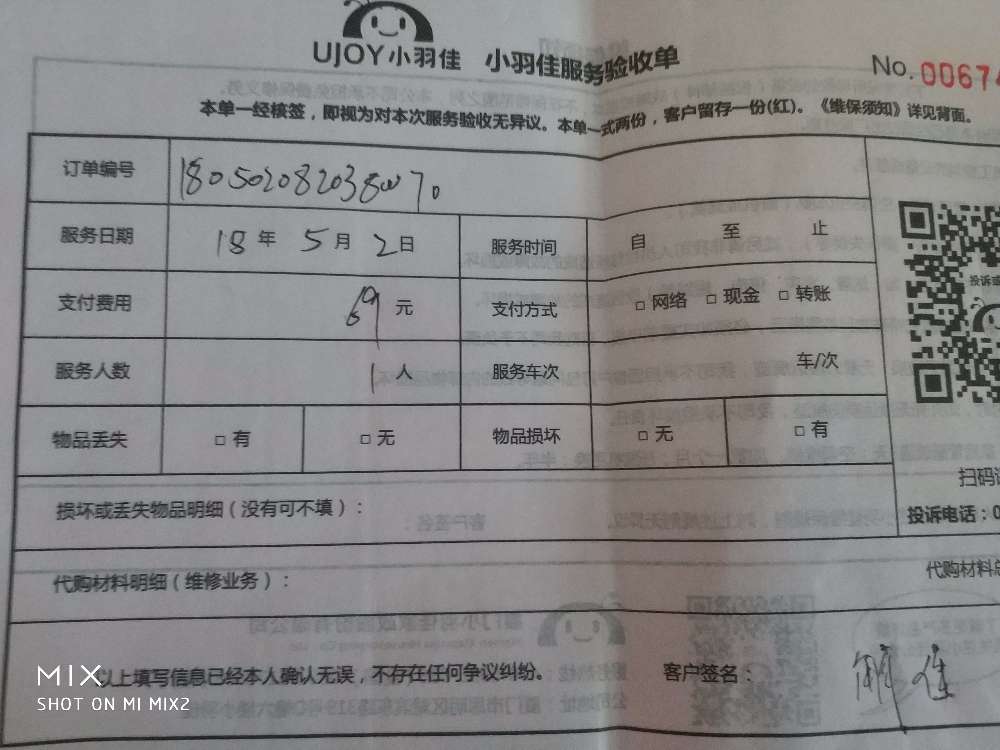 UJOY小羽佳 小羽佳服务验收单
No. 0067
本单一经核签，即视为对本次服务验收无异议。本单一式两份，客户留存一份(红)。《维保须知》详见背面。
订单编号
服务日期 18 年 5 月 2 日 服务时间 自 至 止
支付费用 69 元 支付方式 □ 网络 □ 现金 □ 转账
投诉或
服务人数 1 人 服务车次 车/次
物品丢失 □ 有 □ 无 物品损坏 □ 无 □ 有
扫码
损坏或丢失物品明细（没有可不填）：
投诉电话：0
代购材料明细（维修业务）：
代购材料总
以上填写信息已经本人确认无误，不存在任何争议纠纷。 客户签名：
MIX
SHOT ON MI MIX2